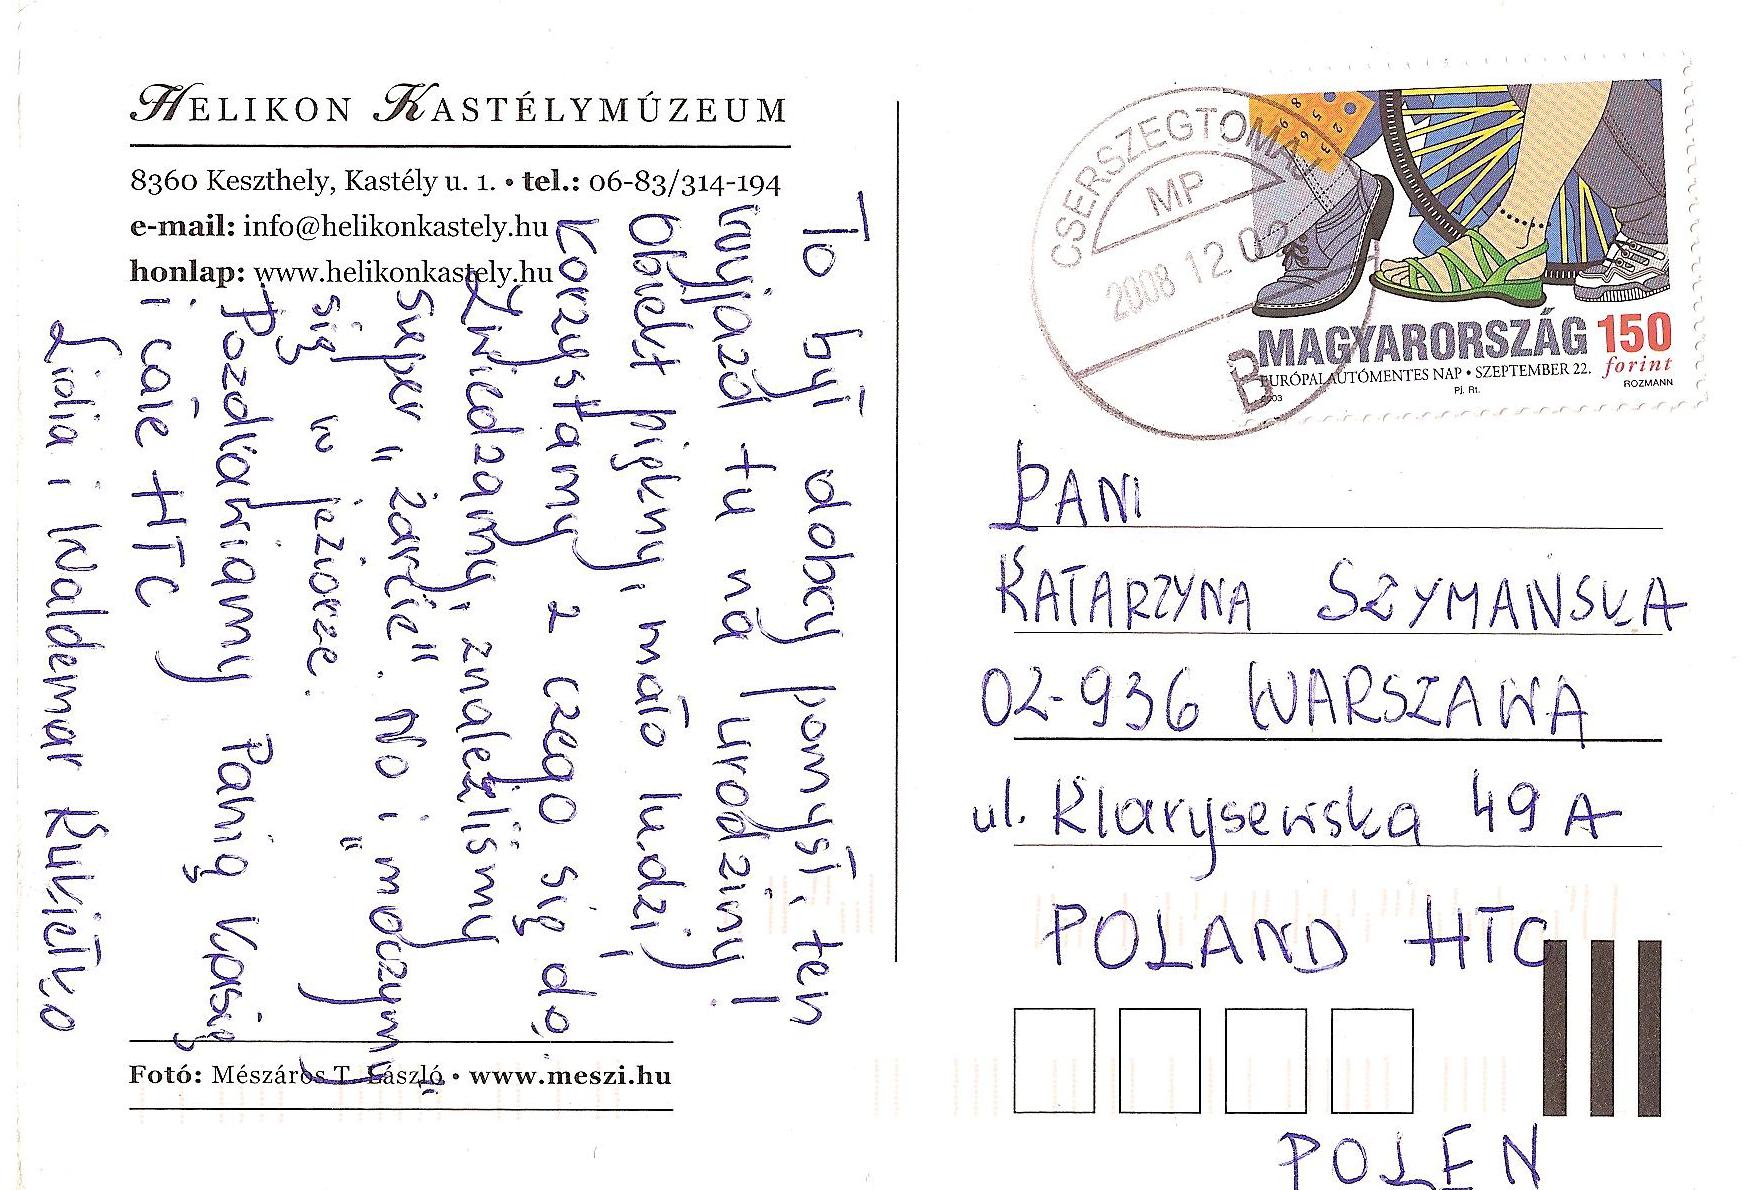 HELIKON KASTÉLYMÚZEUM
8360 Keszthely, Kastély u. 1. • tel.: 06-83/314-194
e-mail: info@helikonkastely.hu
honlap: www.helikonkastely.hu
To był dobry pomysł, ten
wyjazd tu na urodziny!
Obiekt piękny, mało ludzi i
korzystamy z czego się da.
Zwiedzamy, znaleźliśmy
super „żarcie". No i „moczymy"
się w jeziorze.
Pozdrawiamy Panią Kasię
i całe HTC
Lidia i Waldemar Kukiełko
Fotó: Mészáros T. László • www.meszi.hu
CSERSZEGTOMAJ
MP
2008 12 02
B
MAGYARORSZÁG 150
forint
EURÓPAI AUTÓMENTES NAP • SZEPTEMBER 22.
2003
Pj. Rt.
ROZMANN
PANI
KATARZYNA SZYMAŃSKA
02-936 WARSZAWA
ul. Klarysewska 49 A
POLAND HTC
POLEN